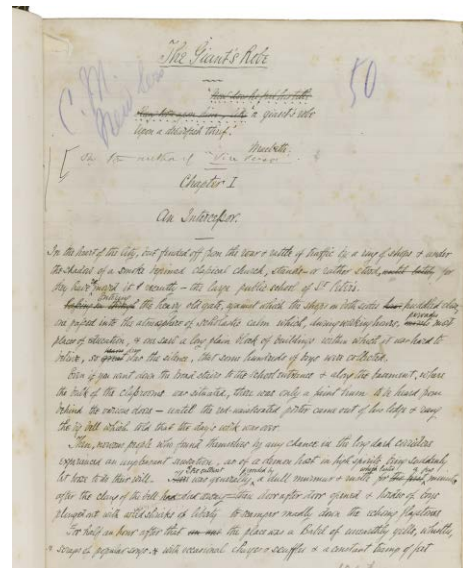 The Giant's Robe
C. M.
New Series
50
a giant's robe
Upon a dwarfish thief."
Macbeth.
[ By the author of "Vice Versâ"
Chapter I
An Intercessor.
In the heart of the City, but fenced off from the roar & rattle of traffic by a ring of shops & under
the shadow of a smoke begrimed classical church, stands – or rather stood, for
they have moved it recently – the large public school of St Peter's.
Entering the heavy old gate, against which the shops on both sides huddled close,
one passed into the atmosphere of scholastic calm which, during working hours, pervades most
places of education, & one saw a long plain block of buildings within which it was hard to
believe, so was the silence, that some hundreds of boys were collected.
Even if you went down the broad stairs to the school entrance & along the basement, where
the bulk of the classrooms was situated, there was only a faint hum to be heard from
behind the various doors – until the red waistcoated porter came out of his lodge & rang
the big bell which told that the day's work was over.
Then, nervous people who found themselves by any chance in the long dark corridors
experienced an unpleasant sensation, as of a demon host in high spirits being suddenly
let loose to do their will. was generally a dull murmur & rustle for a few moments
after the clang of the bell had died away – then door after door opened & hordes of boys
plunged out with wild shrieks of liberty to scamper madly down the echoing flagstones
For half an hour after that the place was a Babel of unearthly yells, whistles,
& scraps of popular songs, with occasional charges & scuffles & a constant tramp of feet